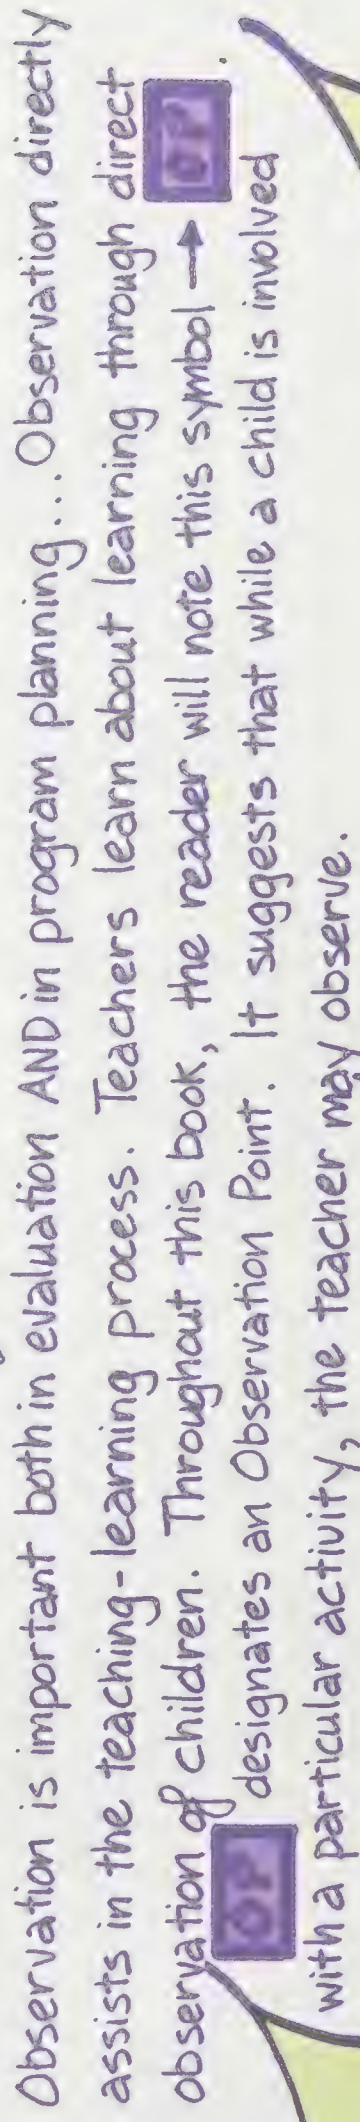 Observation is important both in evaluation AND in program planning... Observation directly
assists in the teaching-learning process. Teachers learn about learning through direct
observation of children. Throughout this book, the reader will note this symbol → OP .
OP designates an Observation Point. It suggests that while a child is involved
with a particular activity, the teacher may observe.